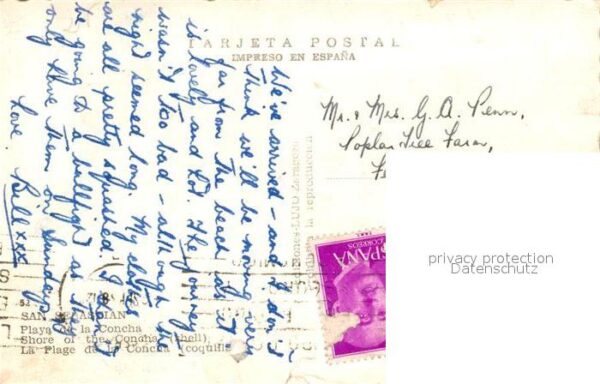 TARJETA POSTAL
IMPRESO EN ESPAÑA
We've arrived - and I don't
think we'll be moving very
far from the beach as it
is lovely and hot. The journey
wasn't too bad - although the
night seemed long. My clothes
are all pretty squashed. I
be going to a bullfight as they
only have them on Sundays
Love.
Bill xxx
Mr. & Mrs. G. A. Penn,
Poplar Tree Farm,
ESPAÑA
CORREOS
privacy protection
Datenschutz
SAN SEBASTIAN
Playa de la Concha
Shore of the Concha (shell)
La Plage de la Concha (coquille